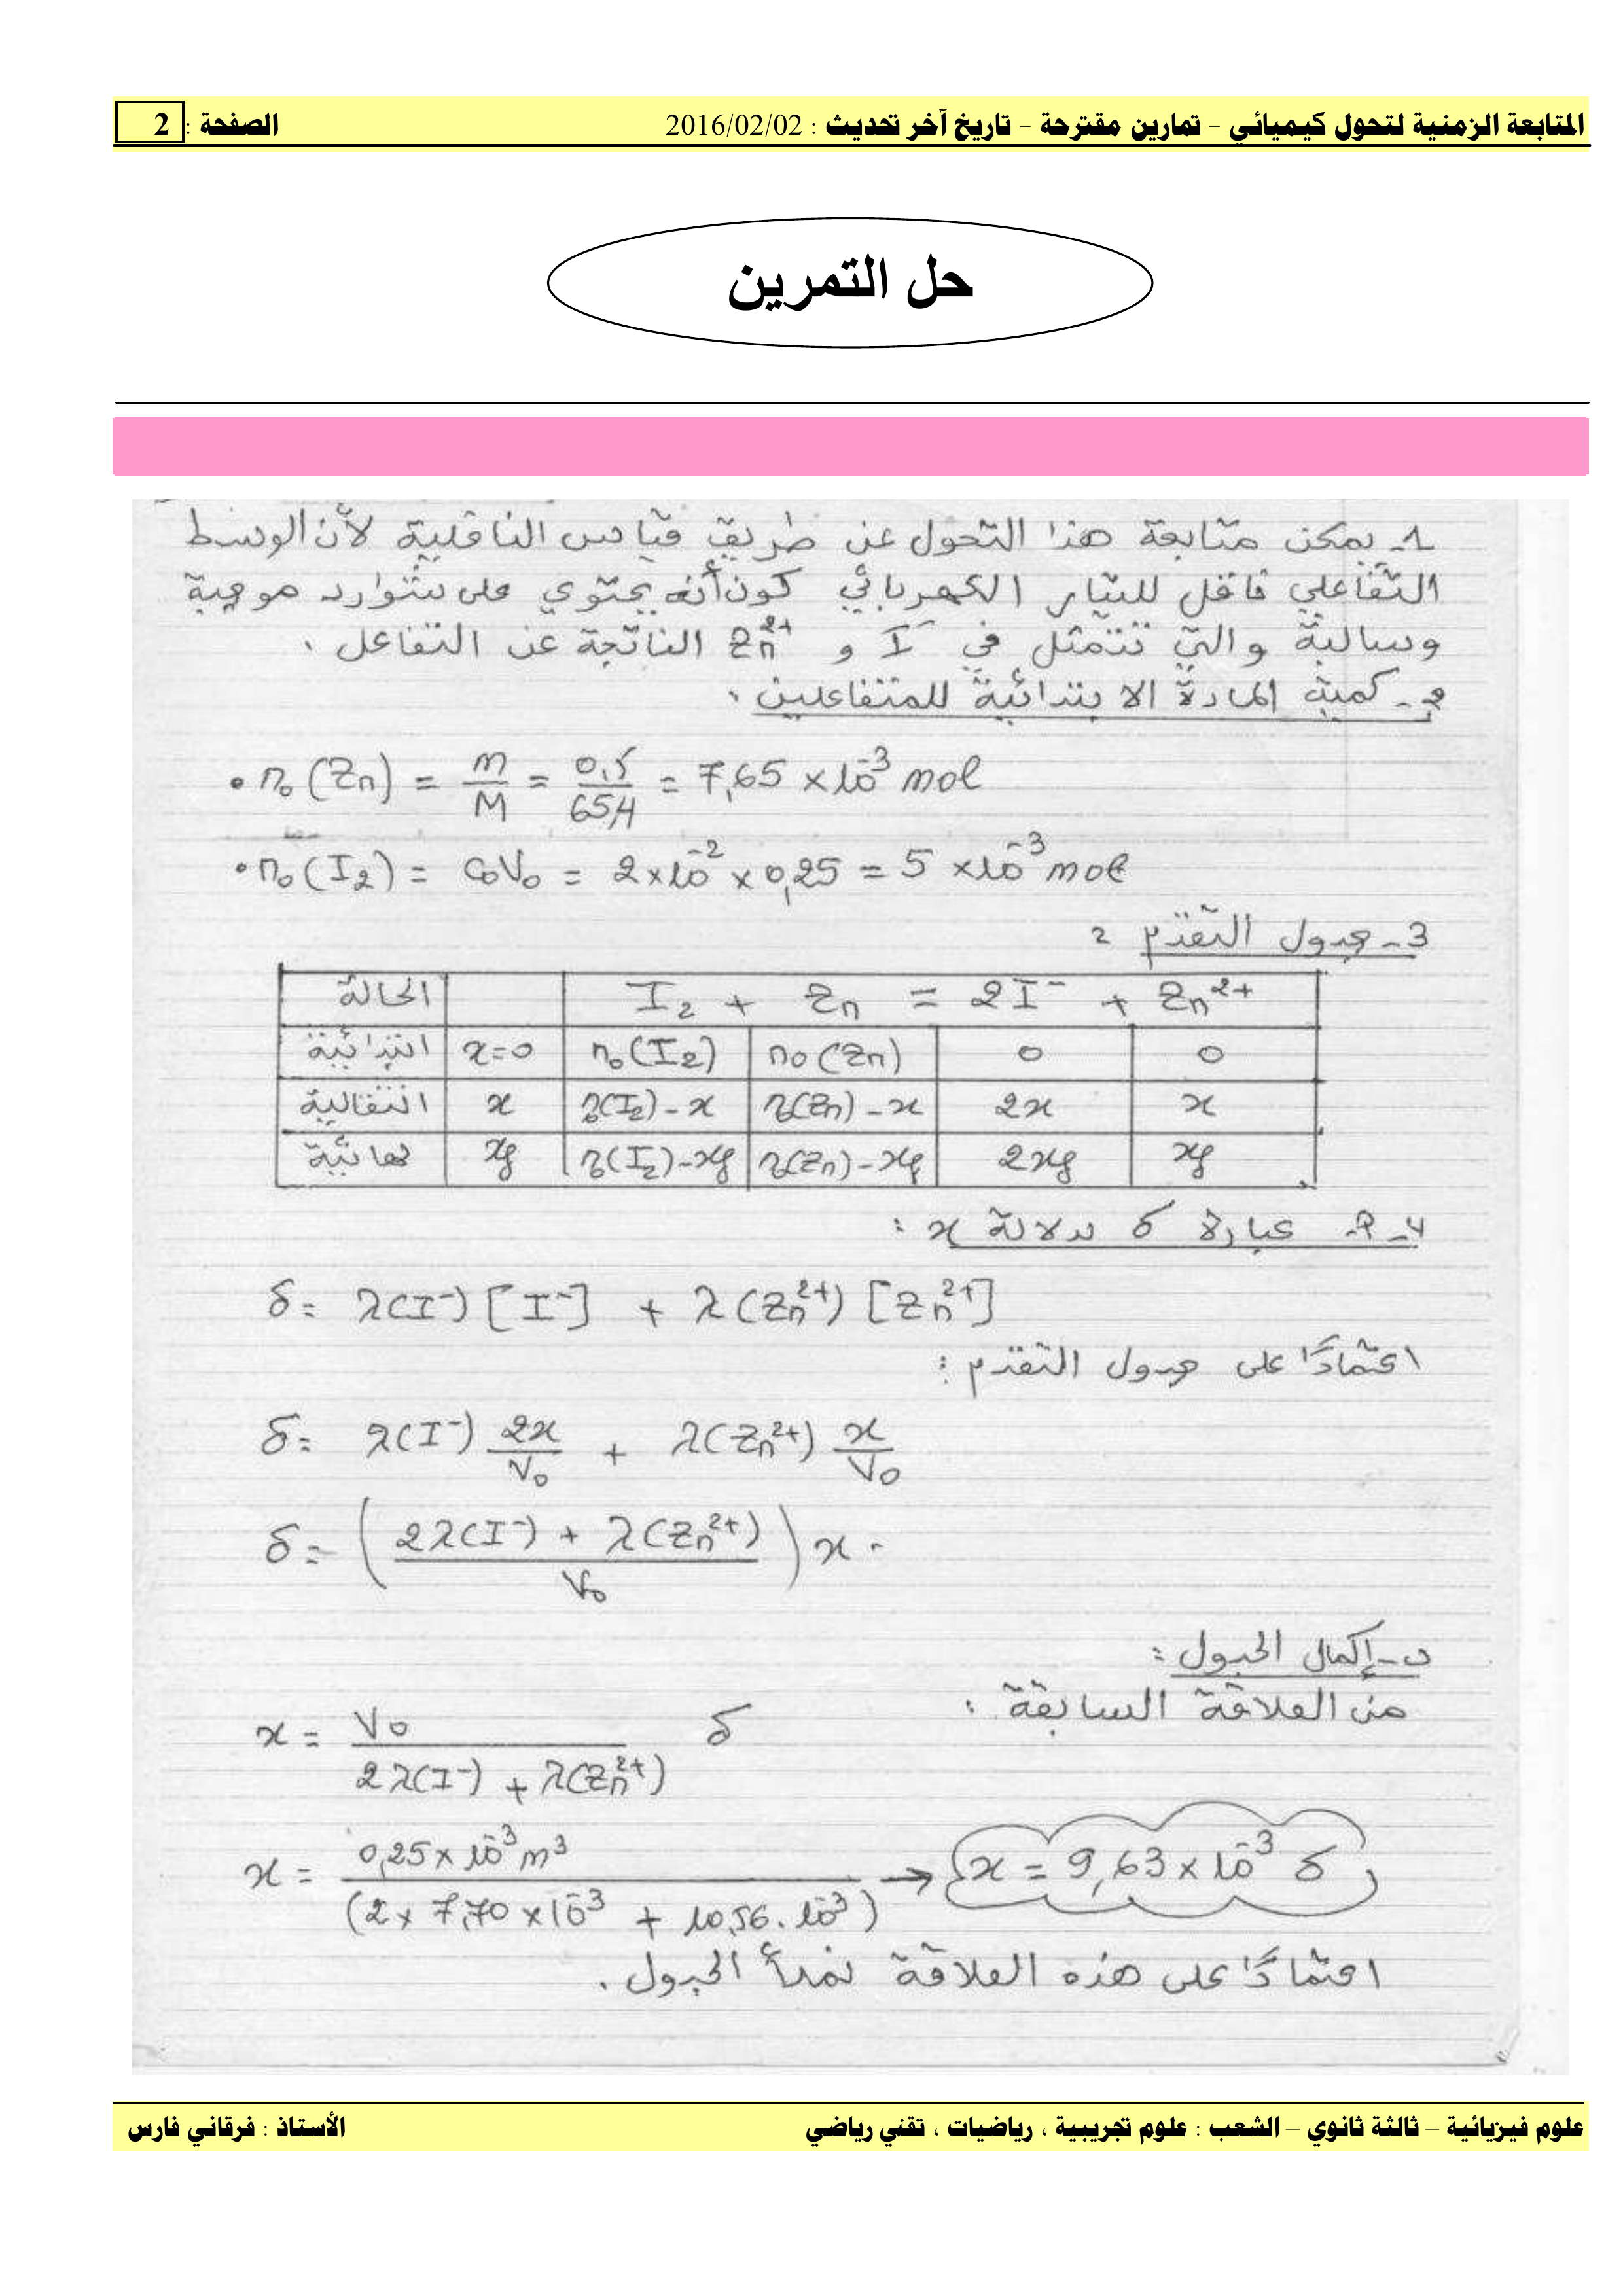 المتابعة الزمنية لتحول كيميائي – تمارين مقترحة – تاريخ آخر تحديث : 2016/02/02 الصفحة : 2
حل التمرين
1- يمكن متابعة هذا التحول عن طريق قياس الناقلية لأن الوسط
التفاعلي ناقل للتيار الكهربائي كون أنه يحتوي على شوارد موجبة
وسالبة والتي تتمثل في I⁻ و Zn²⁺ الناتجة عن التفاعل .
2- كمية المادة الابتدائية للمتفاعلين :
• n₀(Zn) = m/M = 0,5/65,4 = 7,65 × 10⁻³ mol
• n₀(I₂) = C₀V₀ = 2×10⁻² × 0,25 = 5 × 10⁻³ mol
3- جدول التقدم :
الحالة I₂ + Zn = 2I⁻ + Zn²⁺
ابتدائية x=0 n₀(I₂) n₀(Zn) 0 0
انتقالية x n₀(I₂)-x n₀(Zn)-x 2x x
نهائية xf n₀(I₂)-xf n₀(Zn)-xf 2xf xf
4-أ- عبارة δ بدلالة x :
δ = λ(I⁻)[I⁻] + λ(Zn²⁺)[Zn²⁺]
اعتمادًا على جدول التقدم :
δ = λ(I⁻) 2x/V₀ + λ(Zn²⁺) x/V₀
δ = ( (2λ(I⁻) + λ(Zn²⁺)) / V₀ ) x .
ب- إكمال الجدول :
من العلاقة السابقة :
x = V₀ / (2λ(I⁻) + λ(Zn²⁺)) δ
x = 0,25×10⁻³ m³ / (2× 7,70 ×10⁻³ + 10,56.10⁻³) → x = 9,63 × 10⁻³ δ
اعتمادًا على هذه العلاقة نملأ الجدول .
علوم فيزيائية – ثالثة ثانوي – الشعب : علوم تجريبية ، رياضيات ، تقني رياضي الأستاذ : فرقاني فارس